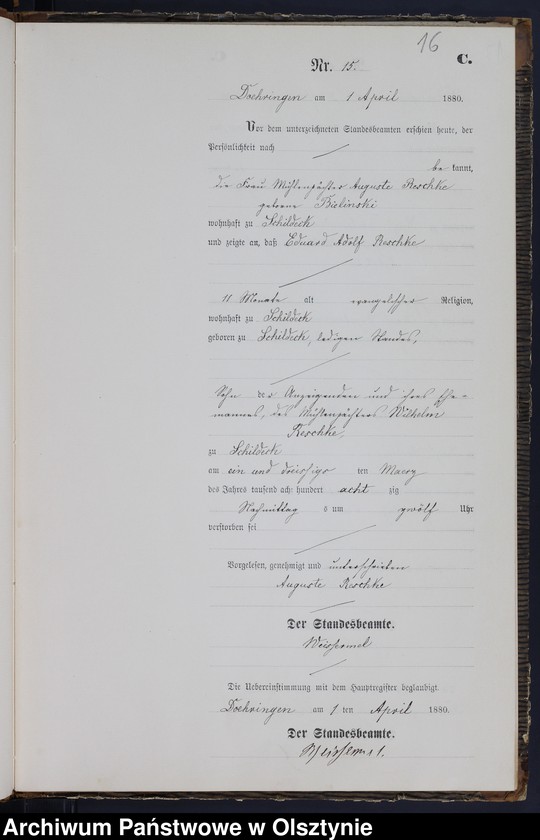 16
C.
Nr. 15.
Doehringen am 1 April 1880.
Vor dem unterzeichneten Standesbeamten erschien heute, der
Persönlichkeit nach
be kannt,
die Frau Mühlenpächter Auguste Reschke
geborene Bielinski
wohnhaft zu Schildeck
und zeigte an, daß Eduard Adolf Reschke
11 Monate alt evangelischer Religion,
wohnhaft zu Schildeck
geboren zu Schildeck, ledigen Standes,
Sohn der Anzeigenden und ihres Ehe-
mannes, des Mühlenpächters Wilhelm
Reschke,
zu Schildeck
am ein und dreissigsten Maerz
des Jahres tausend acht hundert acht zig
Nachmittag s um zwölf Uhr
verstorben sei
Vorgelesen, genehmigt und unterschrieben
Auguste Reschke
Der Standesbeamte.
Weissemel
Die Uebereinstimmung mit dem Hauptregister beglaubigt.
Doehringen am 1 ten April 1880.
Der Standesbeamte.
Weissemel.
Archiwum Państwowe w Olsztynie